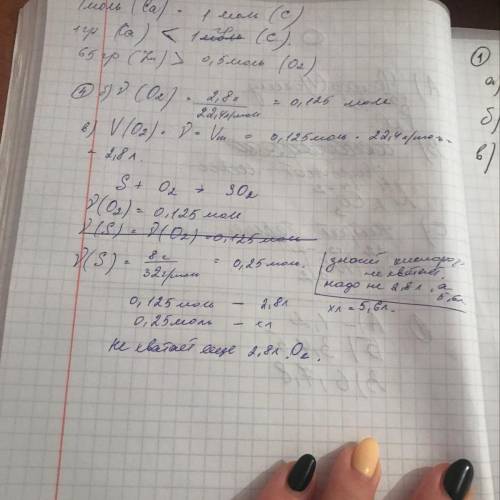 1 моль (Ca) = 1 моль (C)
1 гр (Ca) < 1 гр (C).
65 гр (Zn) > 0,5 моль (O₂)
④ б) ν(O₂) = 2,8л / 22,4 л/моль = 0,125 моль
в) V(O₂) = ν · Vm = 0,125 моль · 22,4 л/моль =
= 2,8 л.
S + O₂ → SO₂
ν(O₂) = 0,125 моль
ν(S) = ν(O₂) = 0,125 моль
ν(S) = 8г / 32 г/моль = 0,25 моль.
значит кислорода
не хватает,
надо не 2,8 л, а
5,6 л.
0,125 моль – 2,8 л
0,25 моль – xл
xл = 5,6 л.
Не хватает еще 2,8 л O₂.
①
а)
б)
в)